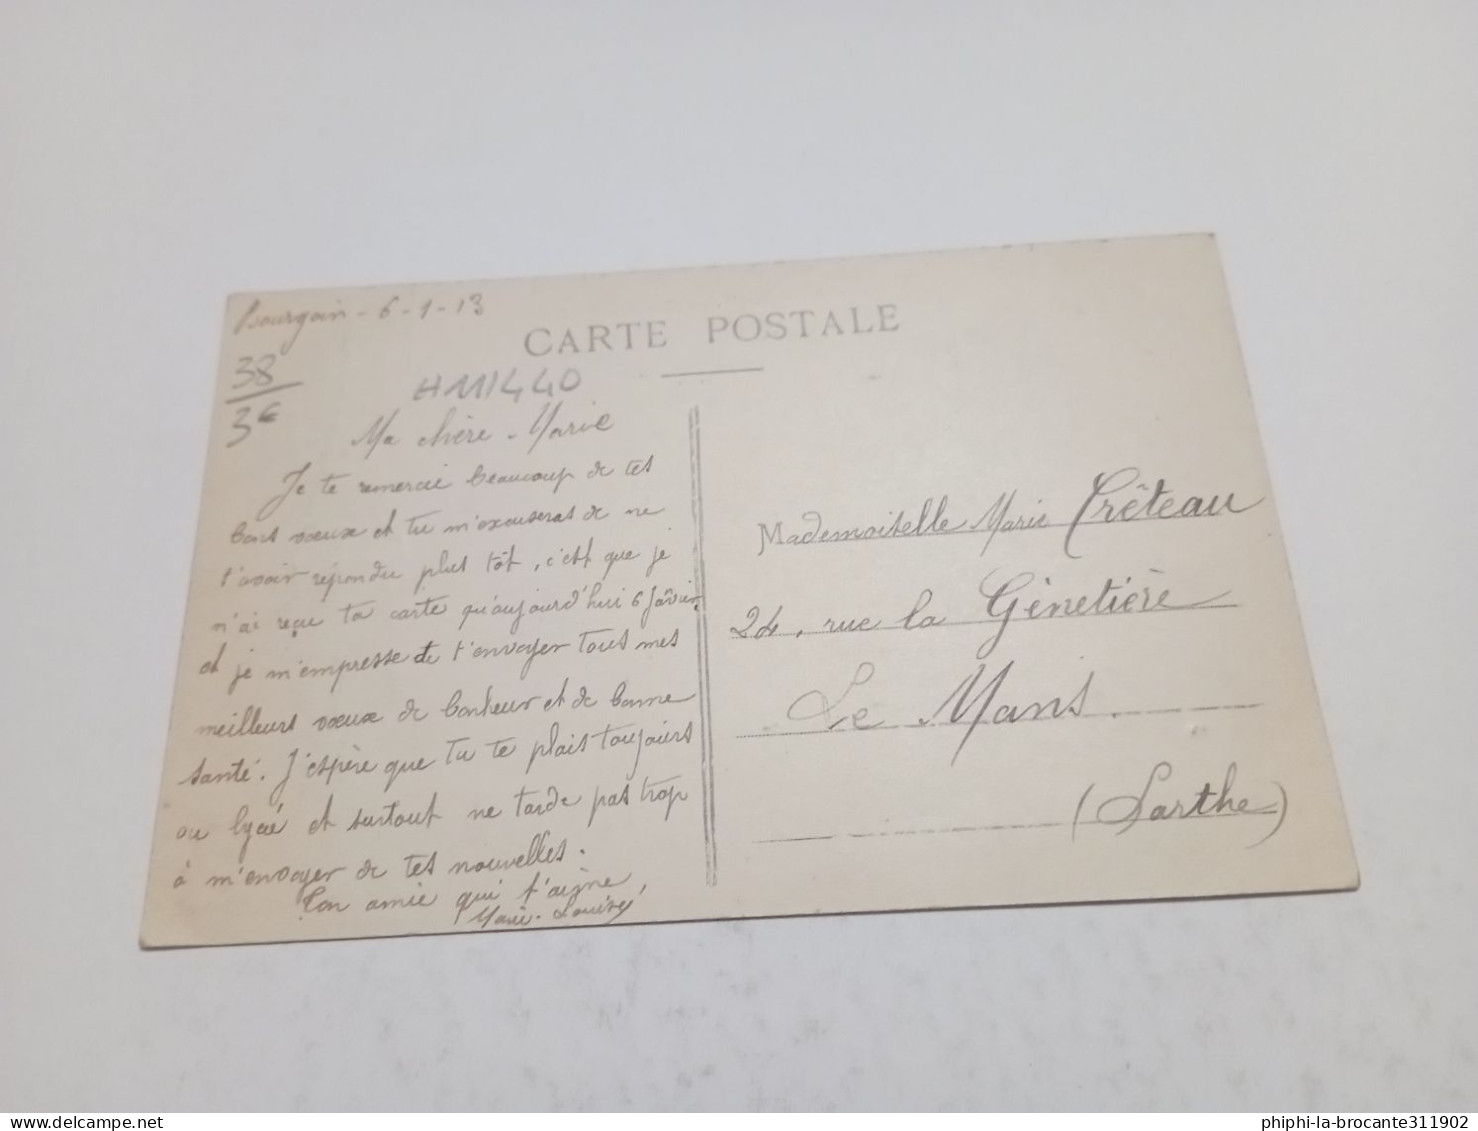 Bourgoin - 6-1-13
CARTE POSTALE
38
3€
H11/440
Ma chère Marie
Je te remercie beaucoup de tes
bons vœux et tu m'excuseras de ne
t'avoir répondu plus tôt, c'est que je
n'ai reçu ta carte qu'aujourd'hui 6 Janvier,
et je m'empresse de t'envoyer tous mes
meilleurs vœux de bonheur et de bonne
santé. J'espère que tu te plais toujours
au lycée et surtout ne tarde pas trop
à m'envoyer de tes nouvelles.
Ton amie qui t'aime,
Marie-Louise
Mademoiselle Marie Crêteau
24, rue la Génetière
Le Mans.
(Sarthe)
phiphi-la-brocante311902
www.delcampe.net